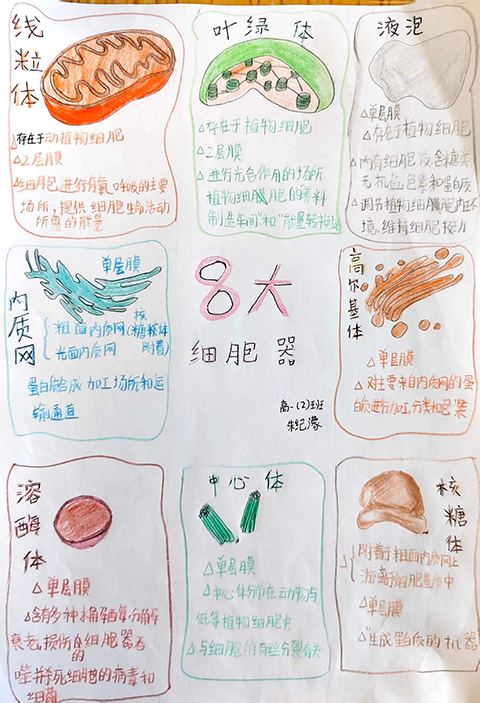 线粒体
△存在于动植物细胞
△2层膜
△细胞进行有氧呼吸的主要
场所,提供细胞生命活动
所需的能量
叶绿体
△存在于植物细胞
△2层膜
△进行光合作用的场所
植物细胞的"养料
制造车间"和"能量转换站
液泡
△单层膜
△存在于植物细胞
△内有细胞液,含糖类
无机盐色素和蛋白质
△调节植物细胞内环
境,维持细胞挺力
内质网
单层膜
粗面内质网(核糖核体附着)
光面内质网
蛋白合成加工场所和运
输通道
8大
细胞器
高一(2)班
朱纪濛
高尔基体
△单层膜
△对主要来自内质网的蛋
白质进行加工,分类和包装
溶酶体
△单层膜
△含有多种水解酶每分解
衰老,损伤的细胞器吞的
噬并杀死细胞的病毒和
细菌
中心体
△单层膜
△中心体分布在动物与
低等植物细胞中
△与细胞的有丝分裂有关
核糖体
△附着于粗面内质网上
游离于细胞基质中
△单层膜
△"生成蛋白质的机器